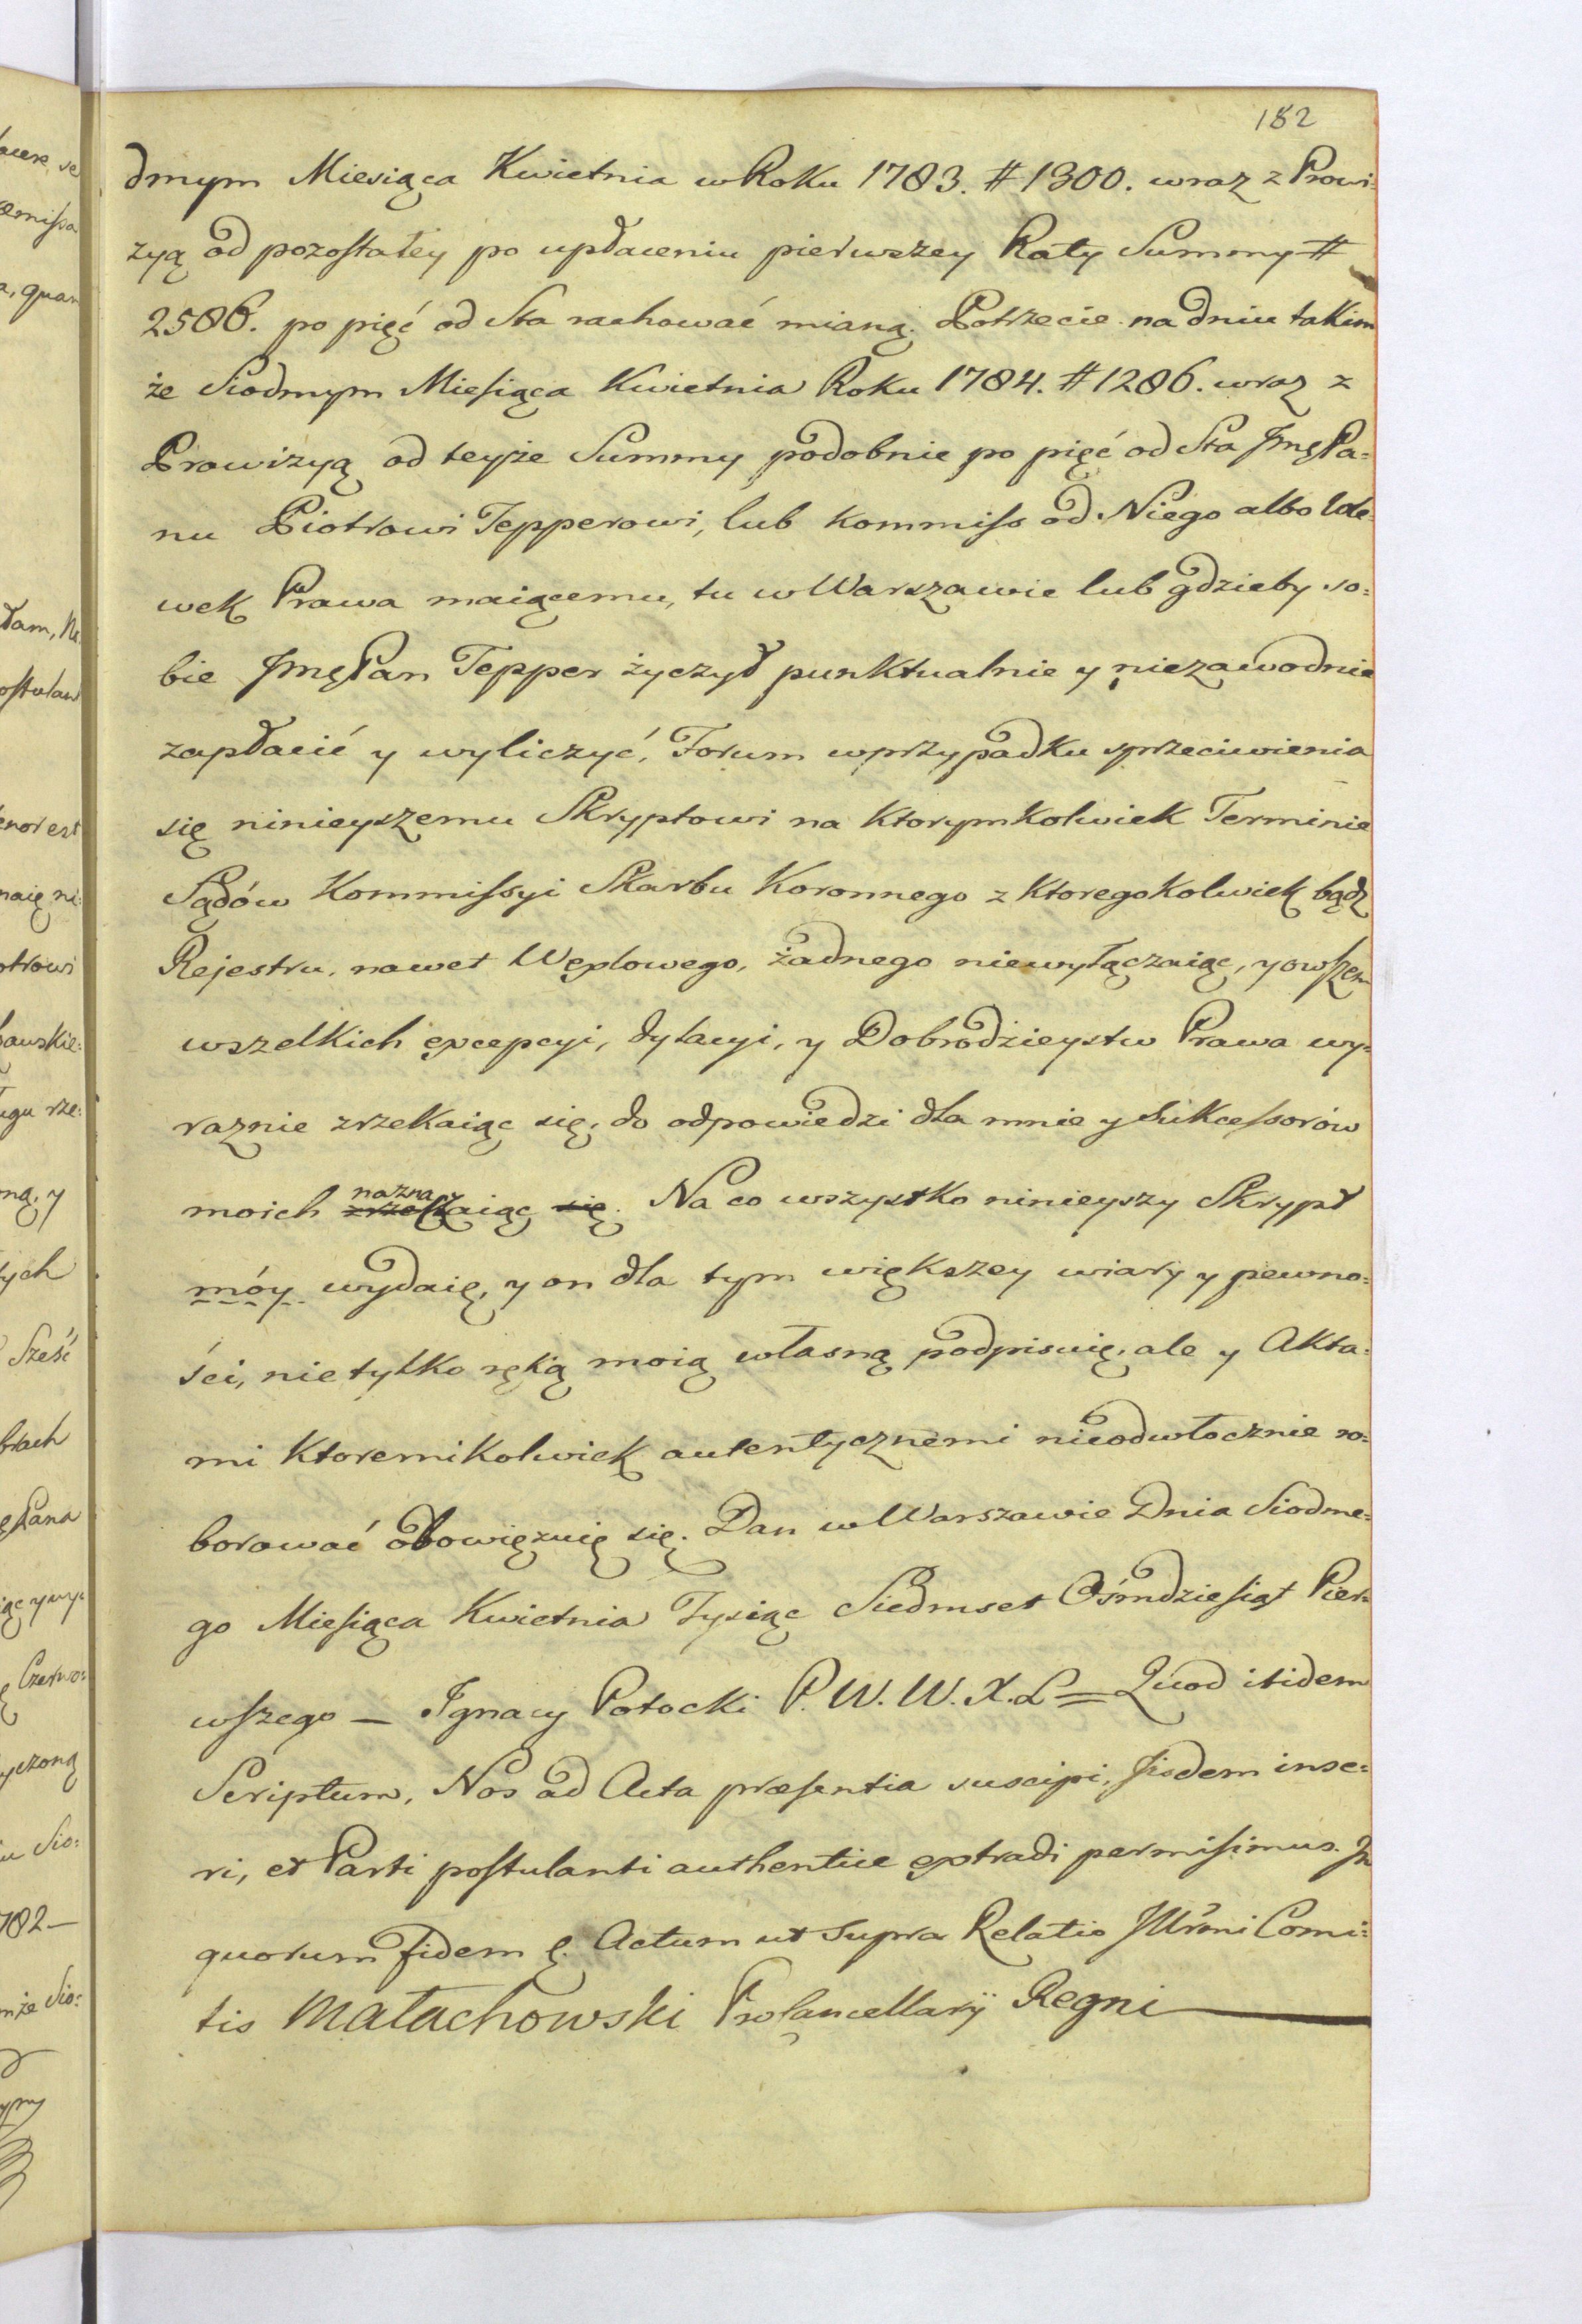 182
dmym Miesiąca Kwietnia w Roku 1783. # 1300. wraz z Prowi:
zyą od pozostałey po upłaceniu pierwszey Raty Summy #
2586. po pięć od Sta rachować mianą. Potrzecie na dniu takim
że Siodmym Miesiąca Kwietnia Roku 1784. # 1286. wraz z
Prowizyą od teyże Summy podobnie po pięć od Sta Jmę Pa:
nu Piotrowi Tepperowi, lub kommiss od Niego albo Wle:
wek Prawa maiącemu, tu w Warszawie lub gdzieby so:
bie Jmę Pan Tepper życzył punktualnie y niezawodnie
zapłacić y wyliczyć, Forum w przypadku sprzeciwienia
się ninieyszemu Skryptowi na ktorymkolwiek Terminie
Sądów Kommissyi Skarbu Koronnego z ktoregokolwiek bądz
Rejestru, nawet Wexlowego, żadnego niewyłączaiąc, y owszem
wszelkich excepcyi, dylacyi, y Dobrodzieystw Prawa wy:
raznie zrzekaiąc się, do odpowiedzi dla mnie y Sukcessorów
moich naznaczaiąc się. Na co wszystko ninieyszy Skrypt
móy wydaię, y on dla tym większey wiary y pewno:
ści, nietylko ręką moią własną podpisuię, ale y Akta:
mi ktoremikolwiek autentycznemi nieodwłocznie ro:
borować obowięzuię się. Dan w Warszawie Dnia Siodme:
go Miesiąca Kwietnia Tysiąc Siedmset Ośmdziesiąt Pier:
wszego — Ignacy Potocki P. W. W. X. L = Quod itidem
Scriptum, Nos ad Acta præsentia suscipi, Jisdem inse:
ri, et Parti postulanti authentice extradi permisimus. In
quorum fidem &. Actum ut supra Relatio Jllrmi Comi:
tis Małachowski Procancellarij Regni